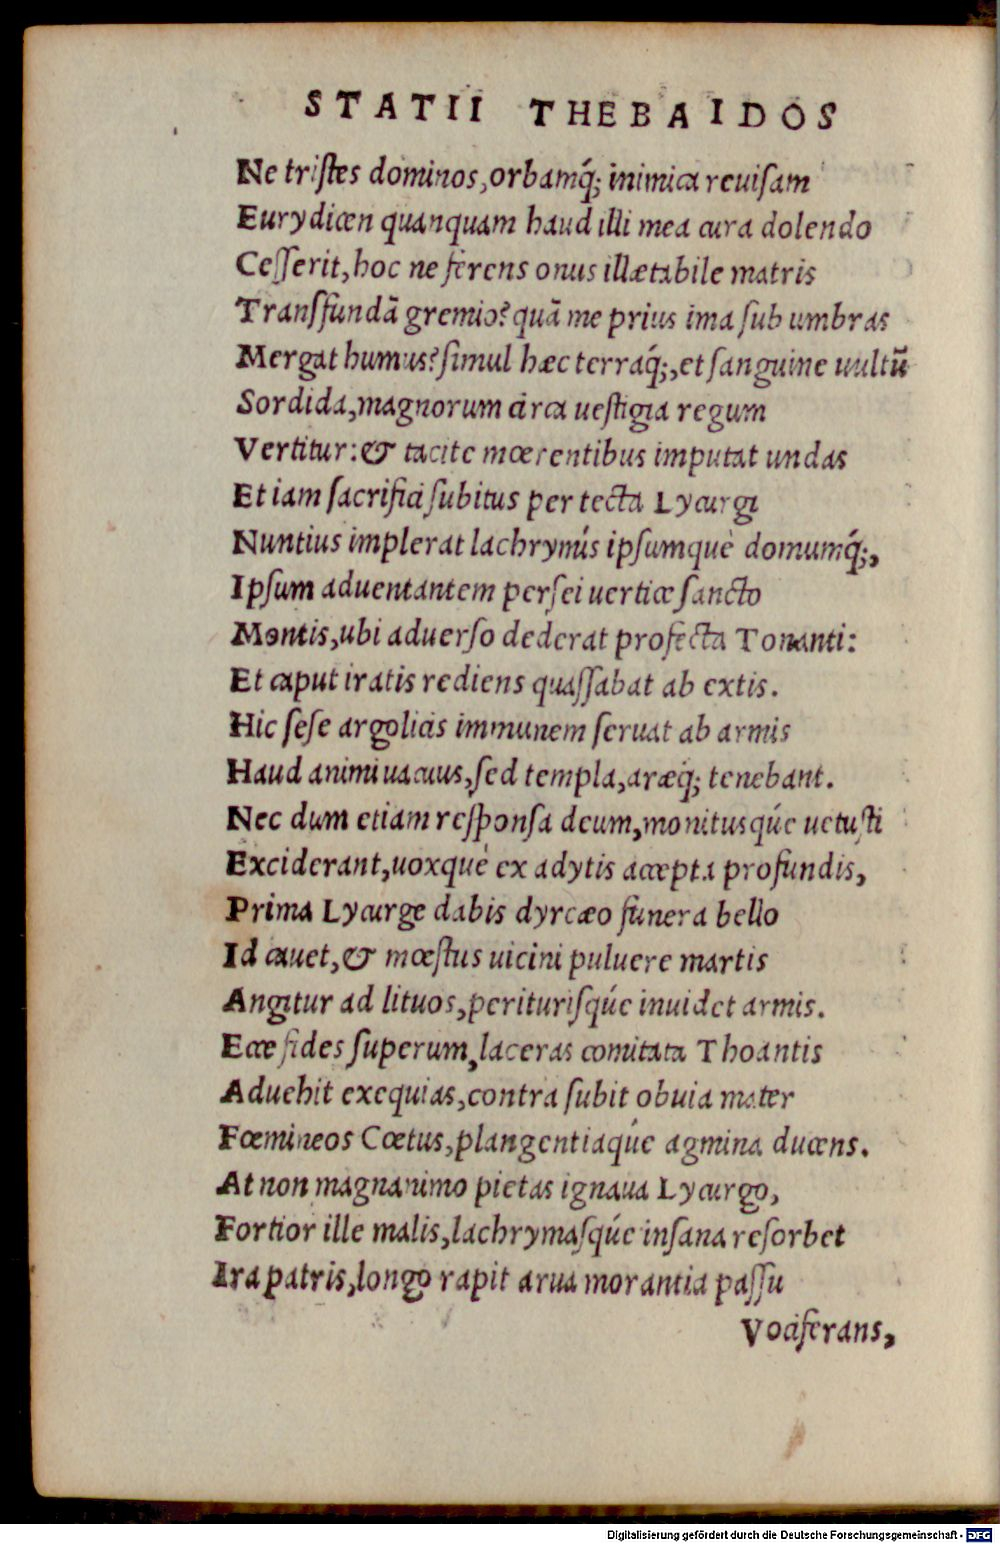 STATII THEBAIDOS
Ne tristes dominos, orbamq́; inimica reuisam
Eurydicen quanquam haud illi mea cura dolendo
Cesserit, hoc ne ferens onus illætabile matris
Transfundā gremio? quā me prius ima sub umbras
Mergat humus? simul hæc terraq́;, et sanguine uultū
Sordida, magnorum circa uestigia regum
Vertitur: & tacite mœrentibus imputat undas
Et iam sacrifici subitus per tecta Lycurgi
Nuntius implerat lachrymis ipsumquè domumq́;,
Ipsum aduentantem persei uertice sancto
Montis, ubi aduerso dederat profecta Tonanti:
Et caput iratis rediens quassabat ab extis.
Hic sese argolicis immunem seruat ab armis
Haud animi uacuus, sed templa, aræq́; tenebant.
Nec dum etiam responsa deum, monitusqúe uetusti
Exciderant, uoxquè ex adytis accepta profundis,
Prima Lycurge dabis dyrcæo funera bello
Id cauet, & mœstus uicini puluere martis
Angitur ad lituos, periturisqúe inuidet armis.
Ecce fides superum, laceras comitata Thoantis
Aduehit exequias, contra subit obuia mater
Fœmineos Cœtus, plangentiaqúe agmina ducens.
At non magnanimo pietas ignaua Lycurgo,
Fortior ille malis, lachrymasqúe insana resorbet
Ira patris, longo rapit arua morantia passu
Vociferans,
Digitalisierung gefördert durch die Deutsche Forschungsgemeinschaft - DFG